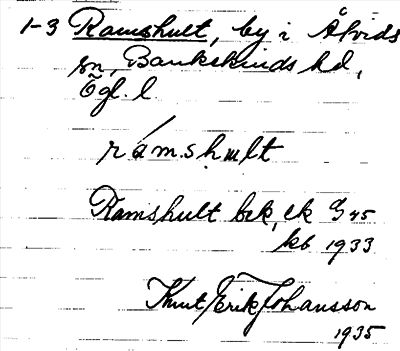 1-3 Ramshult, by i Åtvids
sn, Bankekinds hd,
Ögl. l.
rámshult
Ramshult bek, ek G 45
kb 1933
Knut Erik Johansson
1935